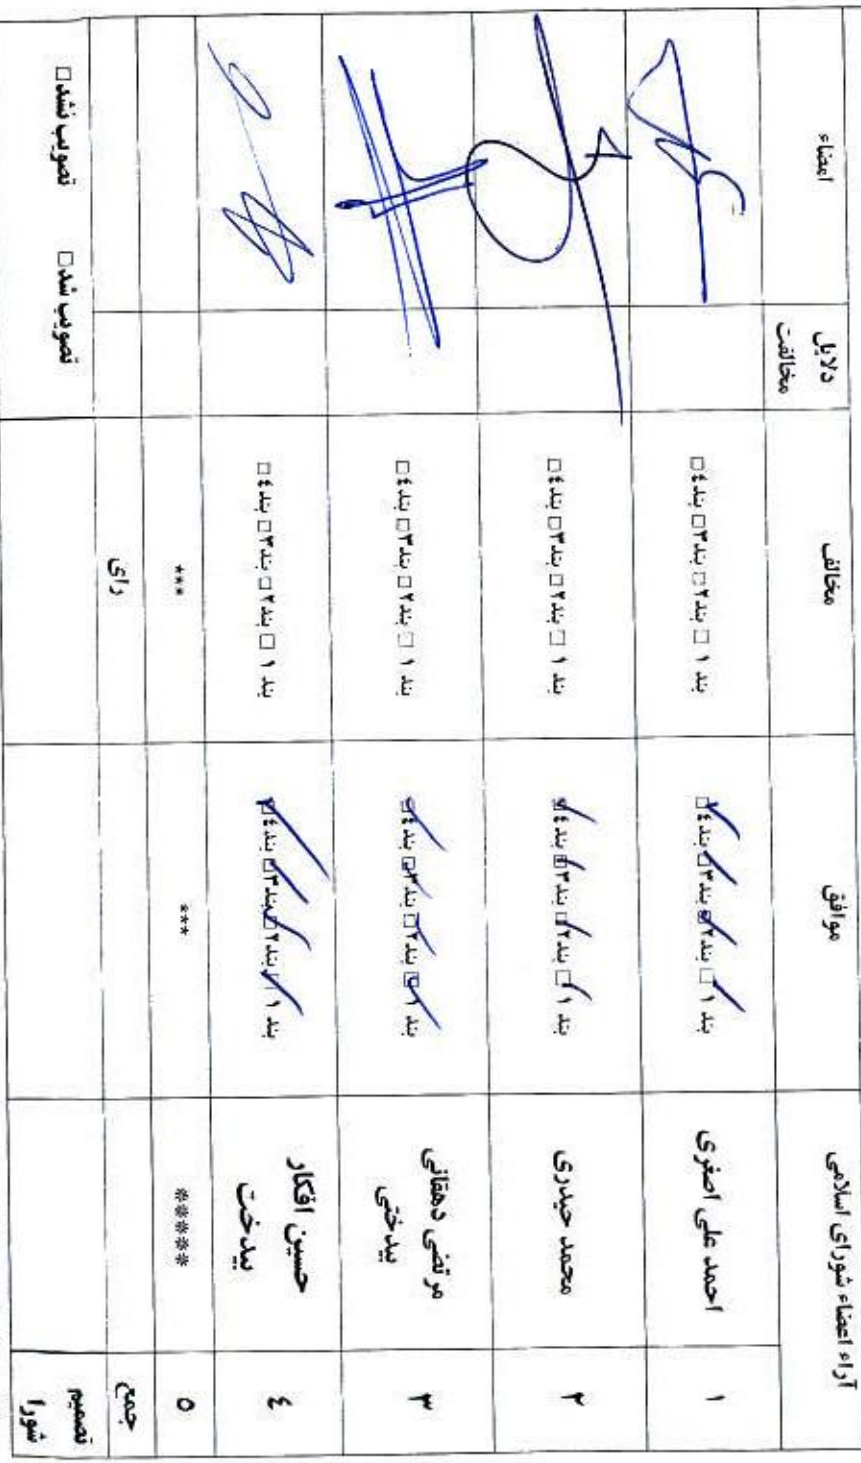 آراء اعضاء شورای اسلامی موافق مخالف دلایل مخالفت امضاء
۱ احمد علی اصغری بند ۱ □ بند۲ □ بند۳ □ بند٤ □ بند ۱ □ بند۲ □ بند۳ □ بند٤ □
۲ محمد حیدری بند ۱ □ بند۲ □ بند۳ □ بند٤ □ بند ۱ □ بند۲ □ بند۳ □ بند٤ □
۳ مرتضی دهقانی بیدختی بند ۱ □ بند۲ □ بند۳ □ بند٤ □ بند ۱ □ بند۲ □ بند۳ □ بند٤ □
٤ حسین افکار بیدخت بند ۱ □ بند۲ □ بند۳ □ بند٤ □ بند ۱ □ بند۲ □ بند۳ □ بند٤ □
۵ ***** *** ***
جمع رای
تصمیم شورا تصویب شد □ تصویب نشد □